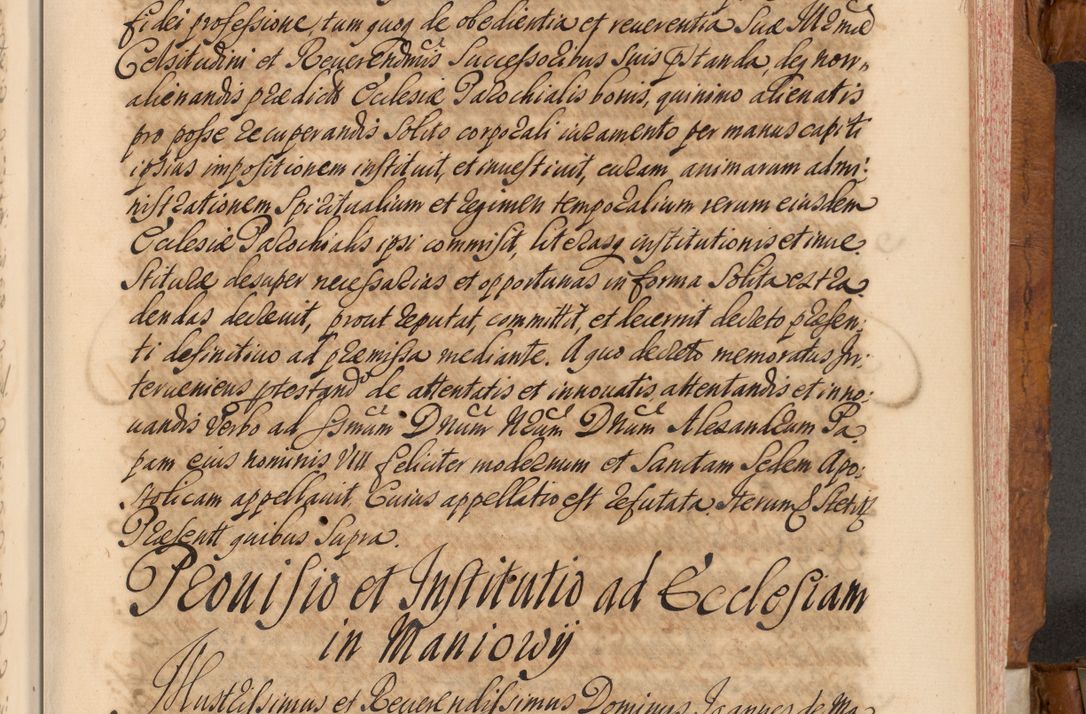 fidei professione, tum quoq de obedientia et reuerentia Suæ Illmæ
Celsitudini et Reuerendmis Successoribus Suis præstanda, deq non
alienandis prædictæ Ecclesiæ Parochialis bonis, quinimo alienatis
pro posse recuperandis solito corporali iuramento per manus capiti
ipsius impositionem instituit, et inuestiuit, curam animarum admi:
nistrationem Spiritualium et regimen temporalium rerum eiusdem
Ecclesiæ Parochialis ipsi commisit, literasq institutionis et inue
stituræ desuper necessarias et opportunas in forma solita extra
dendas decreuit, prout reputat, committit, et decernit decreto præsen:
ti definitiuo ad præmissa mediante. A quo decreto memoratus In:
terueniens ptestando de attentatis et innouatis, attentandis et inno:
uandis verbo ad Ssmum Dnum Nrum Dnum Alexandrum Pa
pam eius nominis VIII feliciter modernum et Sanctam Sedem Apo:
stolicam appellauit, Cuius appellatio est refutata. Iterum & Stetit
Præsentt quibus supra.
Prouisio et Institutio ad Ecclesiam
in Maniowÿ
Illustrissimus et Reuerendissimus Dominus Ioannes de Ma